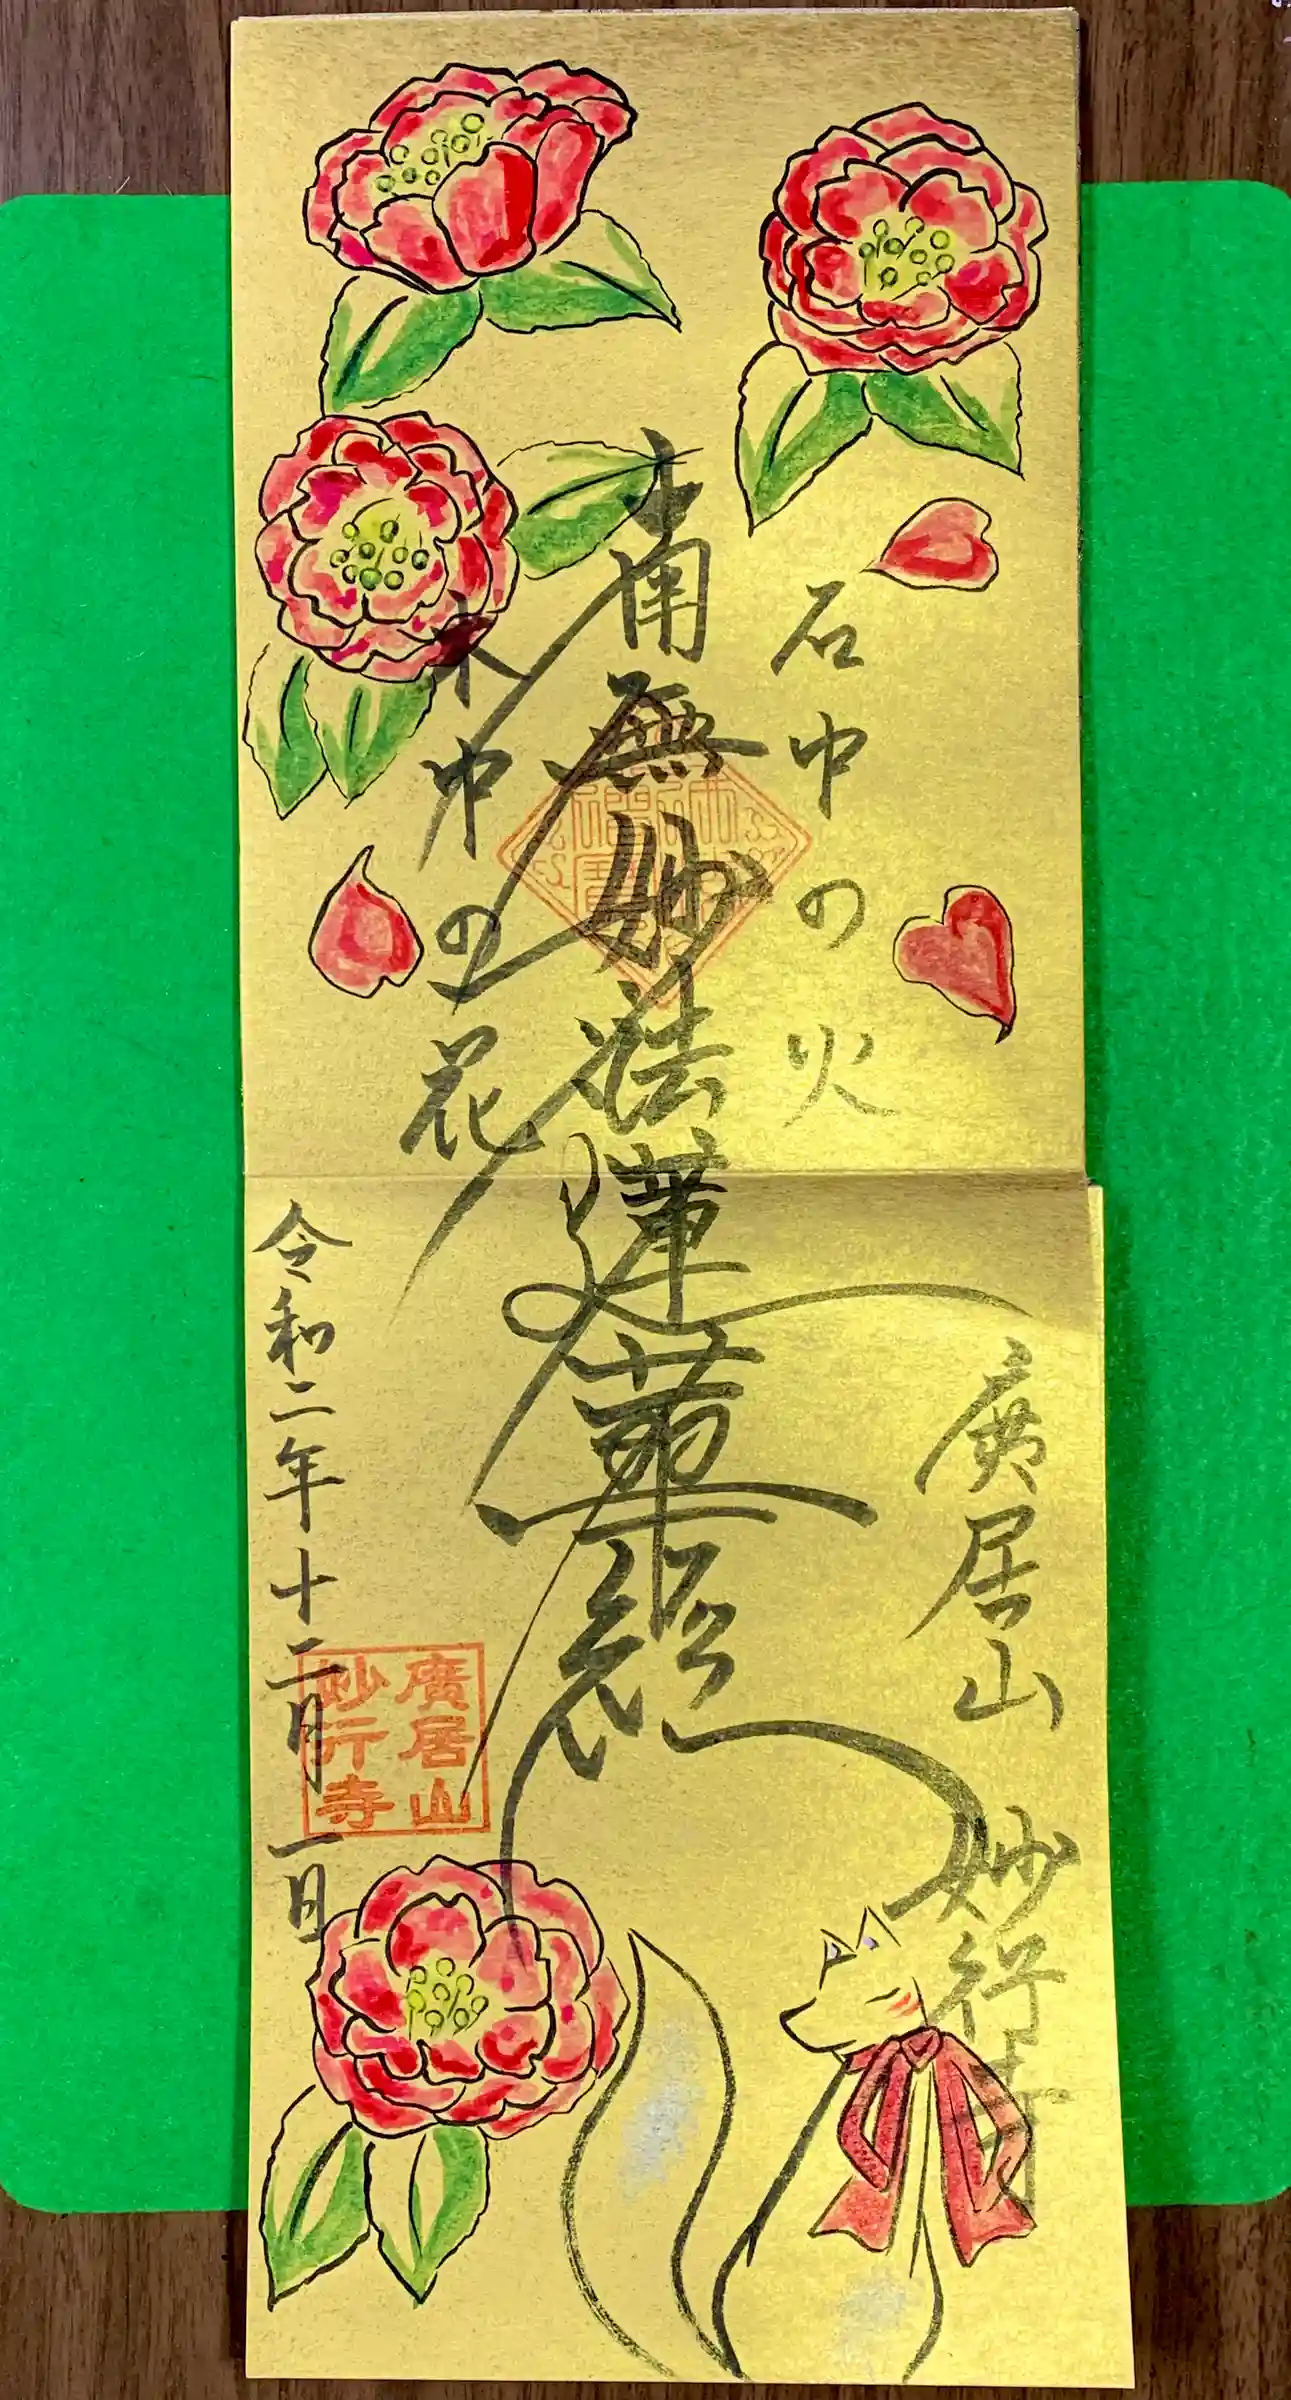 石中の火
南無妙法蓮華経
木中の花
廣居山 妙行寺
令和二年十二月一日
廣居山
妙行寺